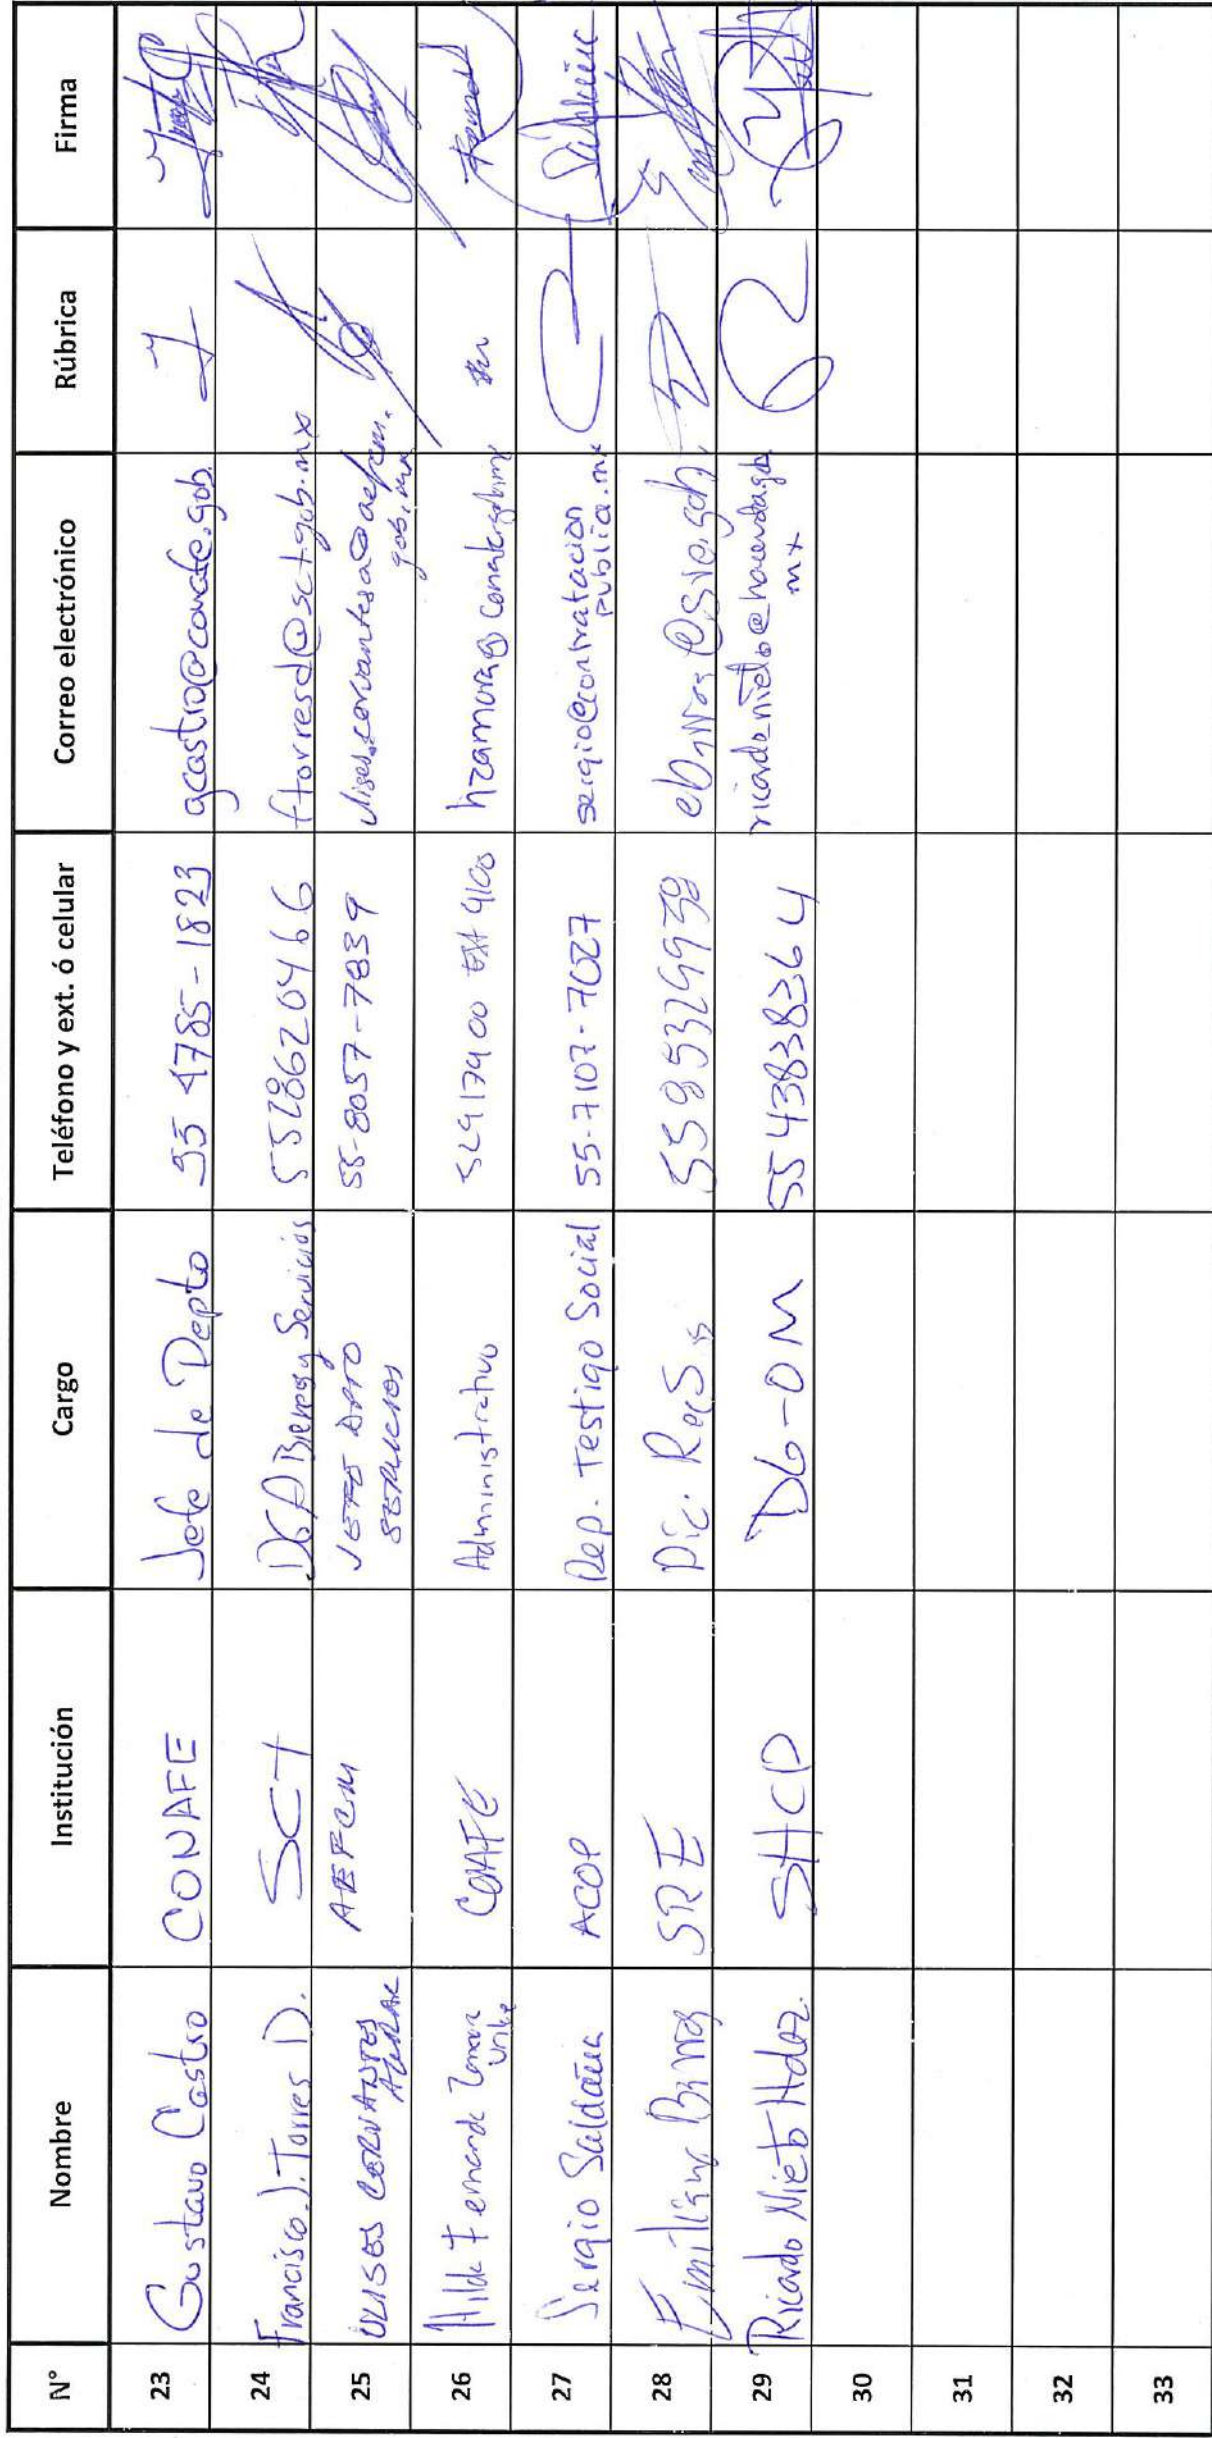 N° Nombre Institución Cargo Teléfono y ext. ó celular Correo electrónico Rúbrica Firma
23 Gustavo Castro CONAFE Jefe de Depto 55 4785-1823 gcastro@conafe.gob.
24 Francisco J. Torres D. SCT DGA Bienes y Servicios 5528620466 ftorresd@sct.gob.mx
25 ULISES CERVANTES AEFCM JEFE DPTO 55-8057-7839 ulises.cervantesa@aefcm.
SERVICIOS gob.mx
26 Hilda Fernanda Zamora CONAFE Administrativo 52417400 Ext 4100 hzamora@conafe.gob.mx
Uribe
27 Sergio Saldaña ACOP Rep. Testigo Social 55-7107-7027 sergio@contratacion
publica.mx
28 Emiliano SRE Dic. 5585329938
29 Ricardo Nieto Hdez. SHCP DG-OM 5543838364 ricardo_nieto@hacienda.gob
mx
30
31
32
33